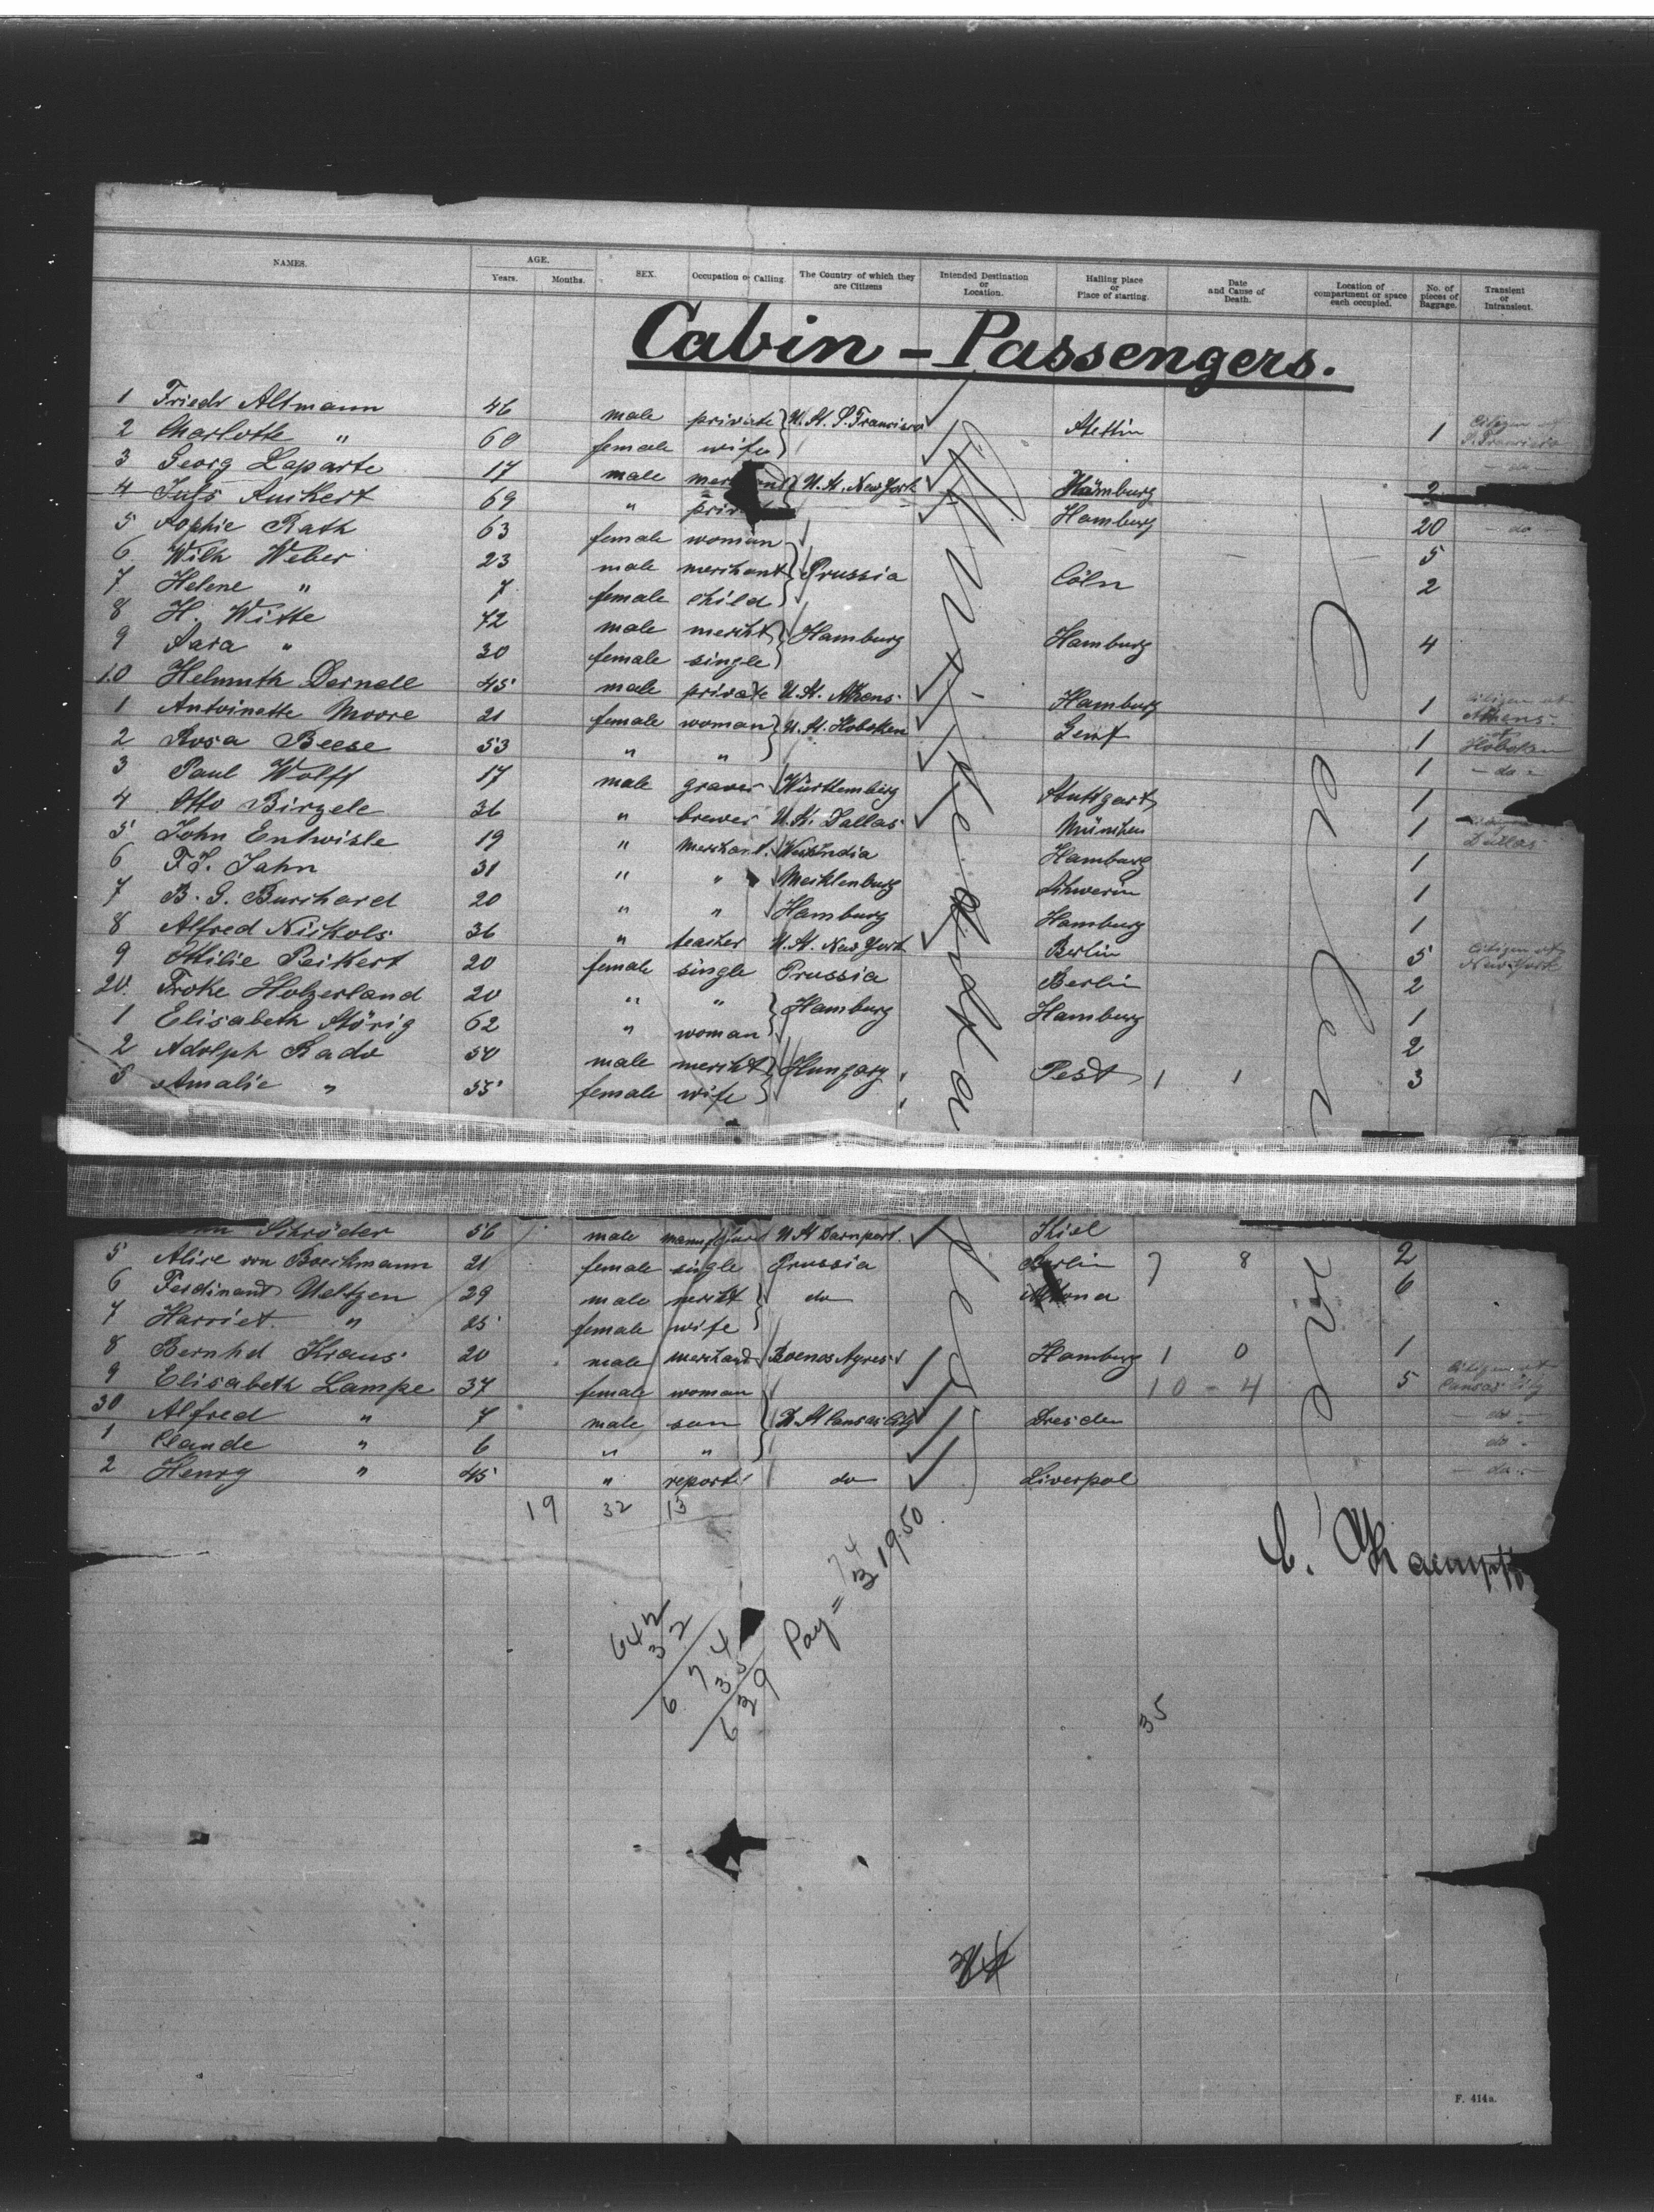 NAMES. AGE. Years. Months. SEX. Occupation or Calling. The Country of which they are Citizens Intended Destination or Location. Hailing place or Place of starting. Date and Cause of Death. Location of compartment or space each occupied. No. of pieces of Baggage. Transient or Intransient.
Cabin - Passengers.
1 Friedr Altmann 46 male private U. St. S. Francisco Stettin 1 Citizen of S. Francisco
2 Charlotte " 60 female wife - do -
3 Georg Laparte 17 male U. St. New York Hamburg 2
4 Ankert 69 " Hamburg 20 - do -
5 Sophie Rath 63 female woman 5
6 Wilh Weber 23 male merchant Prussia Cöln 2
7 Helene " 7 female child
8 H. Witte 72 male mercht Hamburg Hamburg 4
9 Sara " 30 female single
10 Helmuth Dernell 45 male private U. St. Athens Hamburg 1 Citizen of Athens
1 Antoinette Moore 21 female woman U. St. Hoboken Genf 1 Hoboken
2 Rosa Beese 53 " " 1 - do -
3 Paul Wolff 17 male graver Württemberg Stuttgart 1
4 Otto Birzele 36 " brewer U. St. Dallas München 1 Dallas
5 John Entwisle 19 " merchant. Westindia Hamburg 1
6 F. J. Jahn 31 " " Mecklenburg Schwerin 1
7 B. G. Burchard 20 " " Hamburg Hamburg 1
8 Alfred Nickols 36 " teacher U. St. New York Berlin 5 Citizen of New York
9 Ottilie Peikert 20 female single Prussia Berlin 2
20. Froke Holzerland 20 " " Hamburg Hamburg 1
1 Elisabeth Störig 62 " woman 2
2 Adolph Rado 50 male mercht Hungary Pest 1 1 3
3 Amalie " 55 female wife
Schröder 56 male U. St. Davnport. Kiel
5 Alice von Boeckmann 21 female single Prussia Berlin 7 8 2
6 Ferdinand Ueltzen 29 male mercht do Altona 6
7 Harriet " 25 female wife
8 Bernhd Kraus 20 male merchand Buenos Ayres Hamburg 1 0 1
9 Elisabeth Lampe 37 female woman 10 - 4 5 Citizen of Cansas City
30 Alfred " 7 male son U. St Cansas City Dresden - do -
1 Claude " 6 " " - do -
2 Henry " 45 " reporter do Liverpol - do -
19 32 13
C. Kaempff
Pay = 319.50
642
32
674
35
639
35
F. 414a.